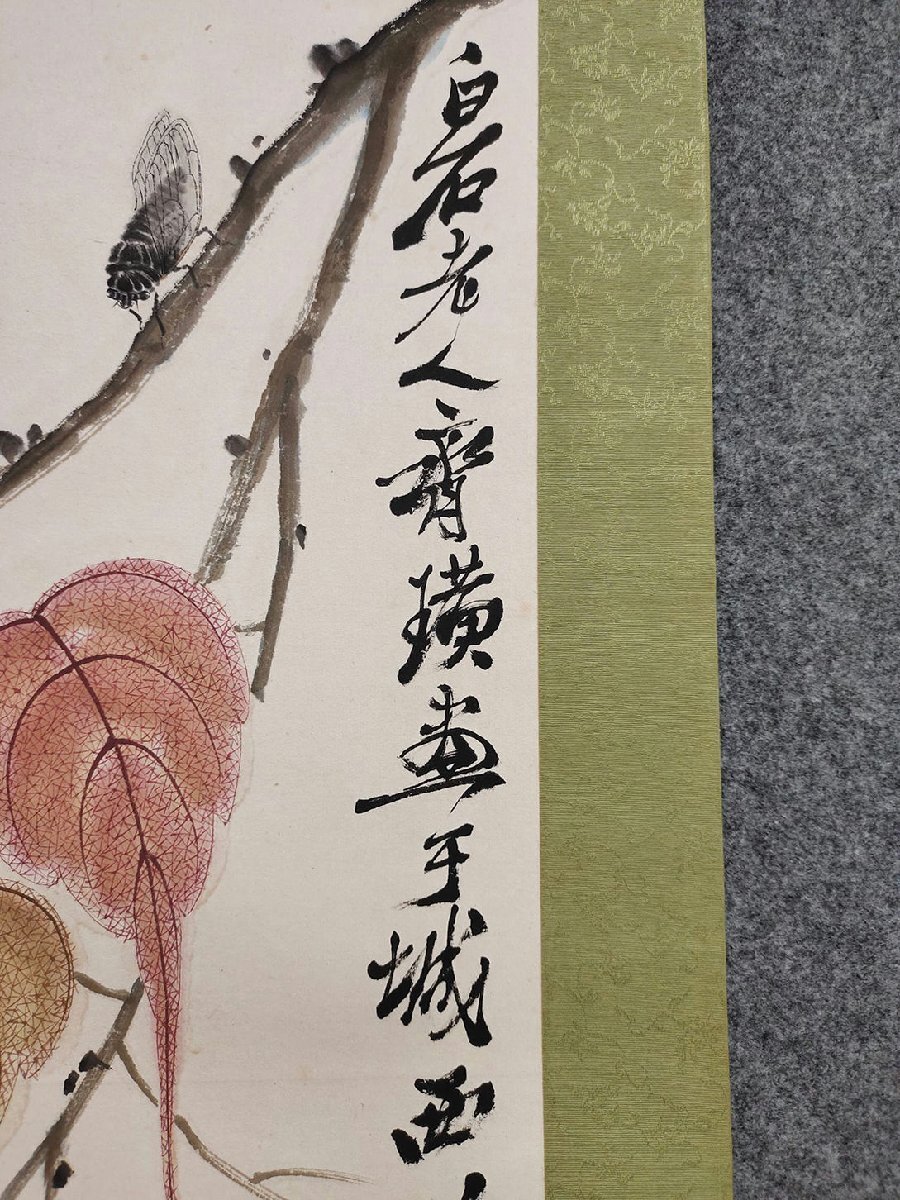 白石老人齊璜畫于城西